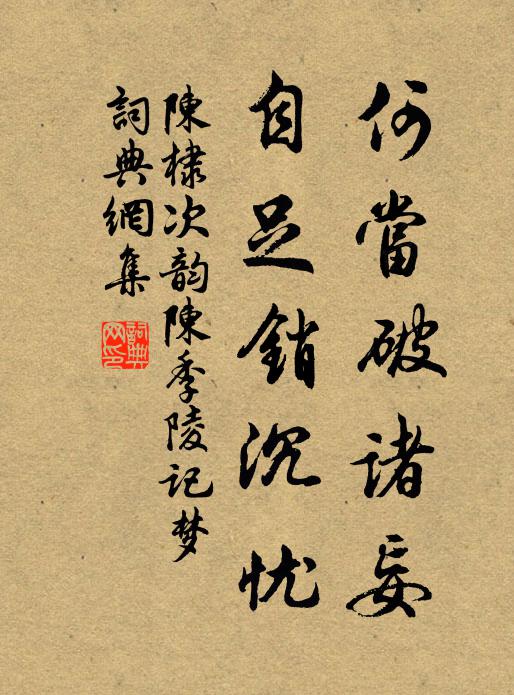 何當破诸妄
自足銷沉忧
陳棣次韵陳季陵记梦
詞典網集
詞典网印